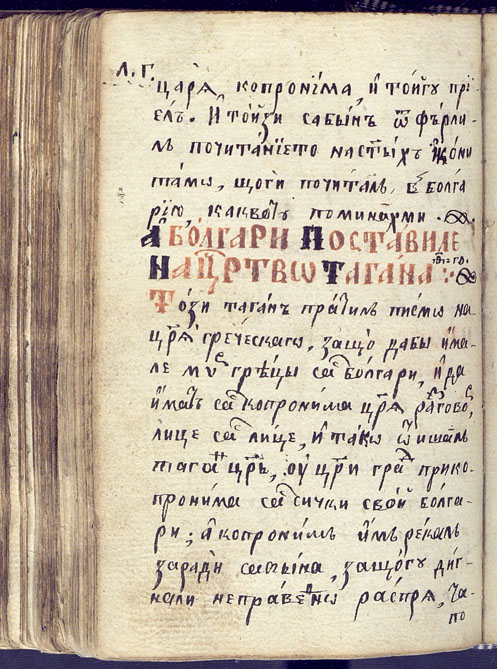 л. г҃.
царѧ, копроніма, и҆ той гꙋ прі
елъ. И҆ то́йзи сабы́нъ ѿфърли-
лъ почита́нїето на ст҃ыхъ и҆кони
тамѡ, щоги почиталъ, в болга
рїю, каквотъ поминахми.
А҆ БОЛГАРИ ПОСТАВИЛЕ
НА ЦРТВѠ ТАГА́НА:
То́зи таганъ пра́тилъ писмѡ на
цр҃ѧ гре́ческагѡ, защо̀ дабы̀ и҆ма-
ле мꙋ гръ́цы са бо́лгари, и҆ да
и҆матъ са копронима цр҃ѧ разгово,
лице са ли́це, и҆ такѡ ѿишалъ
тага цр҃ь, ᲂу цр҃и гра при ко-
пронима са сички свои болга-
ри; а҆ копронимъ и҆мъ рекалъ
заради сабина, защо́гꙋ диг-
нали неправенѡ распрѧ, ча-
по